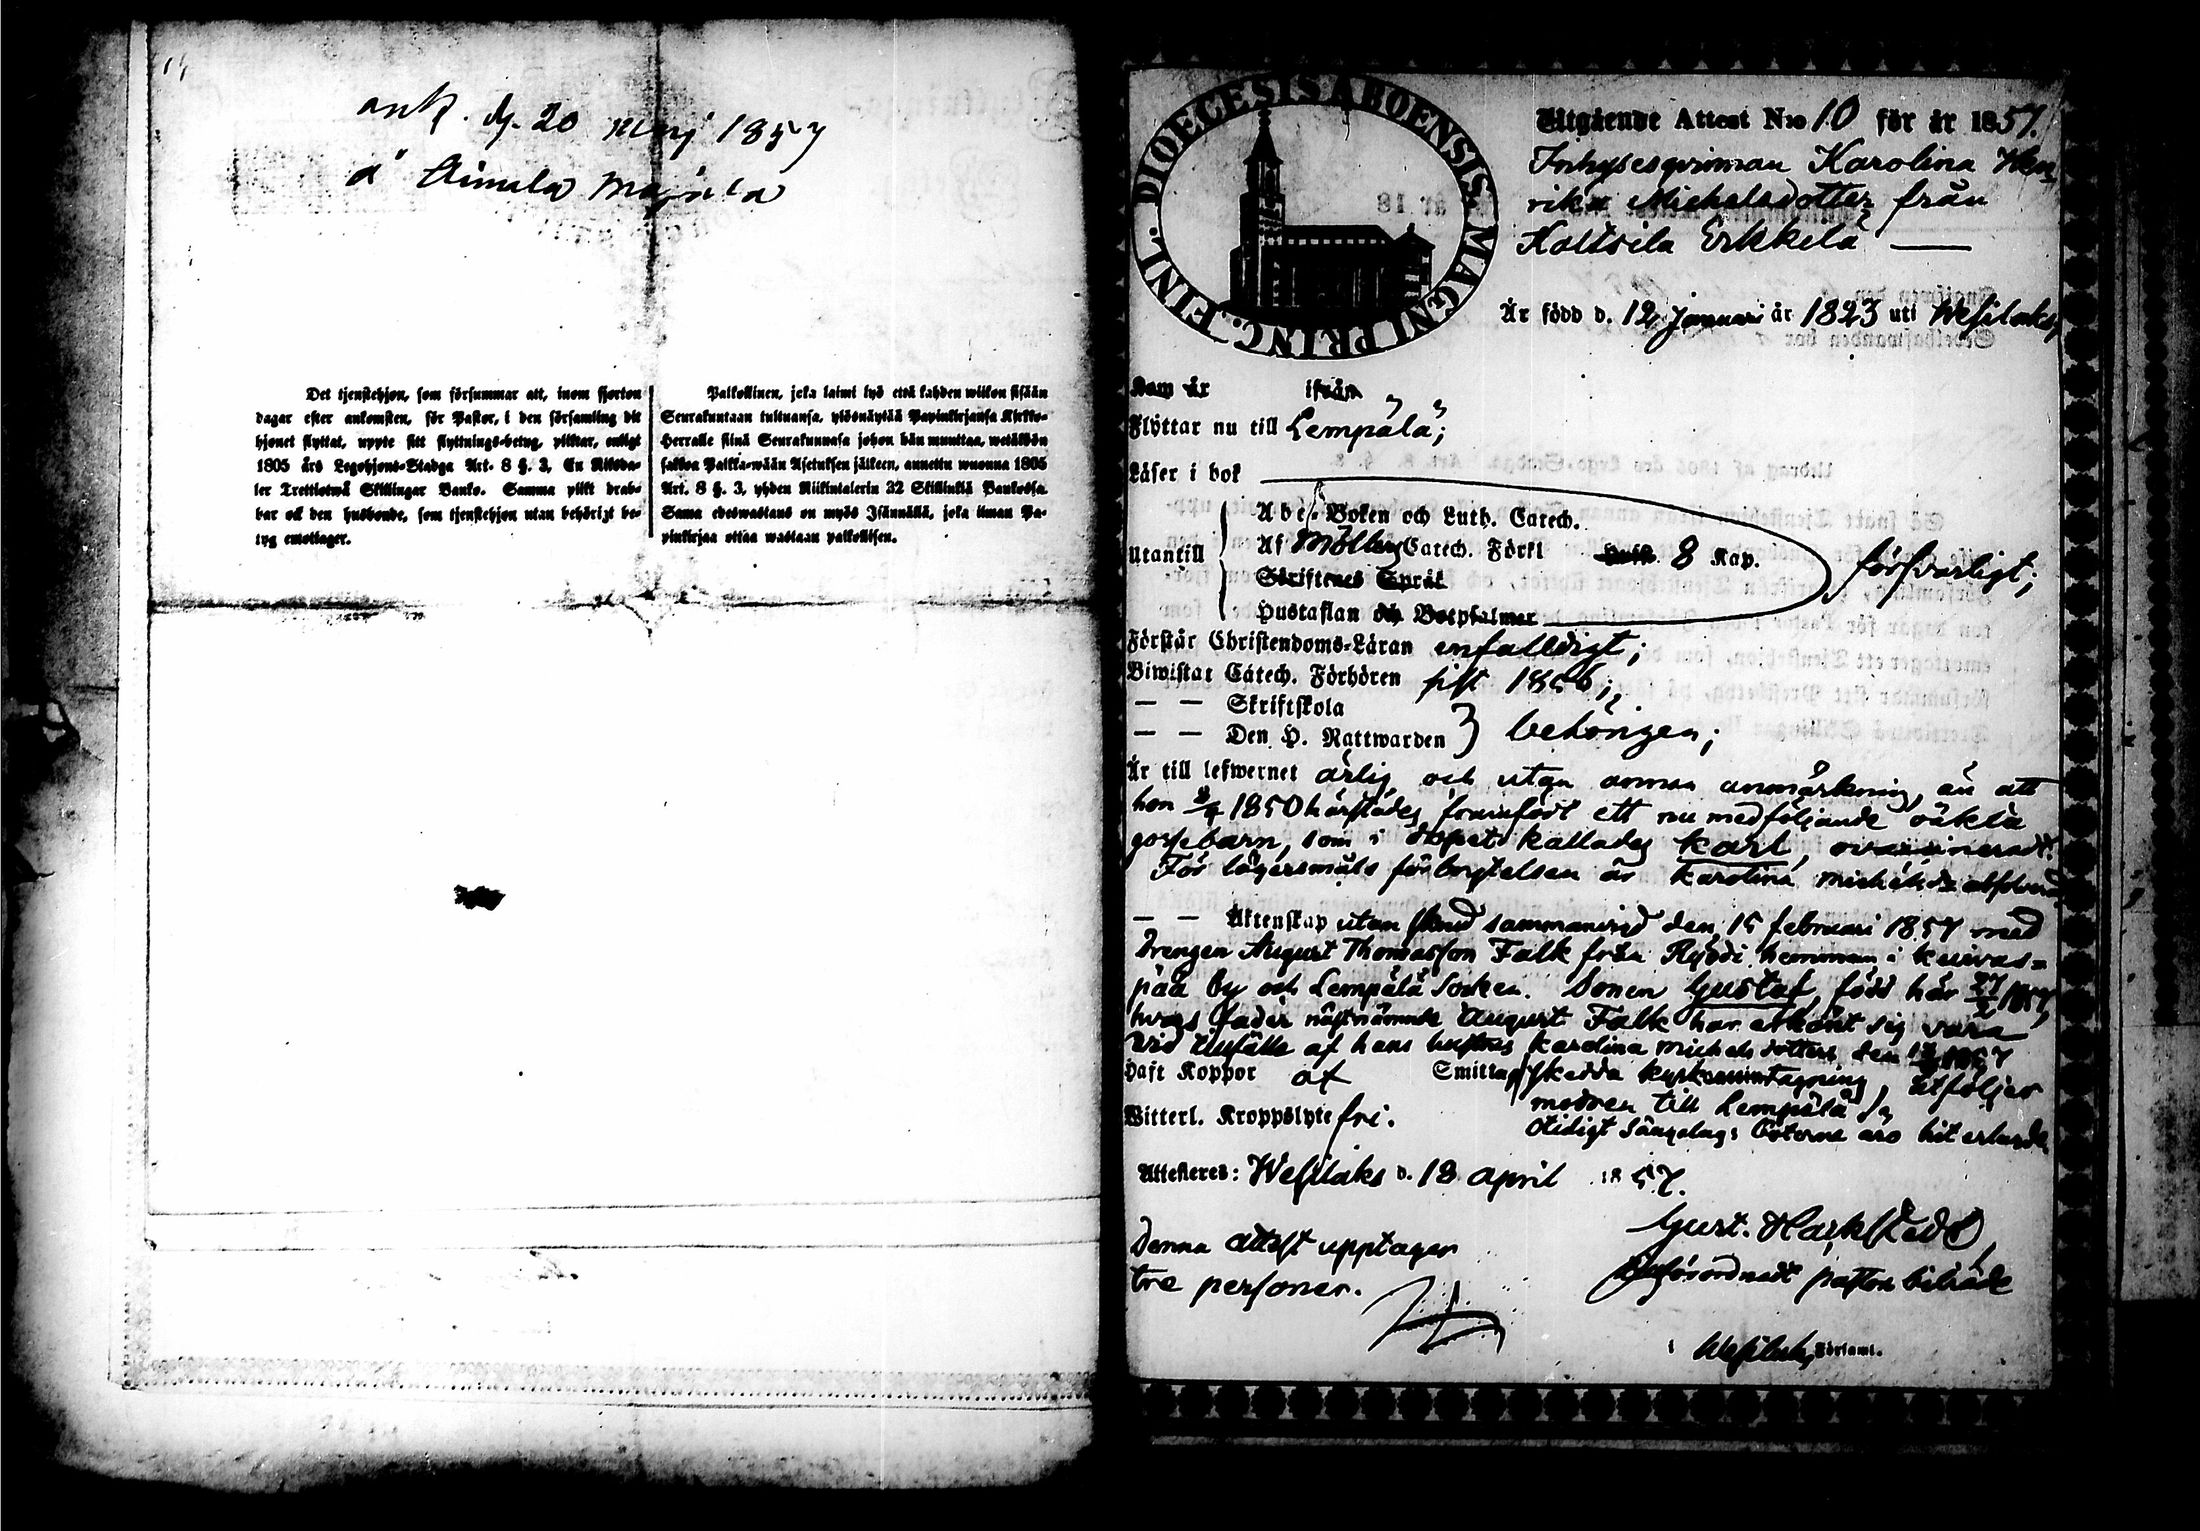 ank. d. 20 Maj 1857
å Aimala Majala
Det tjenstehjon, som försummar att, inom fjorton
dagar efter ankomsten, för Pastor, i den församling dit
hjonet flyttat, uppte sitt flyttnings-betyg, pliktar, enligt
1805 års Legohjons-Stadga Art. 8 §. 3, En Riksda-
ler Trettiotwå Skillingar Banko. Samma plikt drab-
bar ock den husbonde, som tjenstehjon utan behörigt be-
tyg emottager.
Palkollinen, joka laimi lyö että kahden wiikon sisään
Seurakuntaan tultuansa, ylösnäytää Papinkirjansa Kirkko-
Herralle siinä Seurakunnasa johon hän muuttaa, wetäköön
sakkoa Palkka-wään Asetuksen jälkeen, annettu wuonna 1805
Art. 8 §. 3, yhden Riikintalerin 32 Skillinkiä Pankossa.
Sama edeswastaus on myös Isännällä, joka ilman Pa-
pinkirjaa ottaa wastaan palkollisen.
DIOECESIS ABOENSIS. MAGNI PRINC. FINL.
Utgående Attest N:o 10 för år 1857.
Inhysesqvinnan Karolina Hen-
rika Michelsdotter från
Koltsila Erkkelä
Är född d. 12 Januari år 1823 uti Wesilaks,
Kom år ifrån
Flyttar nu till Lempälä;
Läser i bok
Abc-Boken och Luth. Catech.
Utantill Af Möllers Catech. Förkl 8 Kap. försvarligt;
Skriftenes Språk
Hustaflan och Botpsalmer
Förstår Christendoms-Läran enfaldigt;
Biwistat Catech. Förhören sist 1856;
— — Skriftskola
— — Den H. Nattwarden behörigen;
Är till lefwernet ärlig, och utan annan anmärkning, än att
hon 1850 härstädes framfödt ett nu medföljande oäkta
gossebarn, som i dopet kallades Karl, ovaccineradt.
För lägersmåls förbrytelsen är Karolina Michelsdr absolverad
— — Äktenskap utan hinder sammanvigd den 15 februari 1857 med
Drengen August Thomasson Falk från Ryödi hemman i Kuivas-
pää by och Lempälä Socken. Sonen Gustaf, född här 1857,
hvars fader nästnämnde August Falk har erkänt sig vara
vid tillfälle af hans hustrus Karolina Michelsdotters den 1857
Haft Koppor af Smitta, skedda kyrkotagning, åtföljer
modren till Lempälä Sn
Witterl. Kroppslyte fri. Otidigt Sängelags böterne äro hit erlagde
Attesteres: Wesilaks d. 18 april 1857.
Gust. Hackstedt,
förordnadt pastors biträde
i Wesilaks Församl.
Denna attest upptager
tre personer.